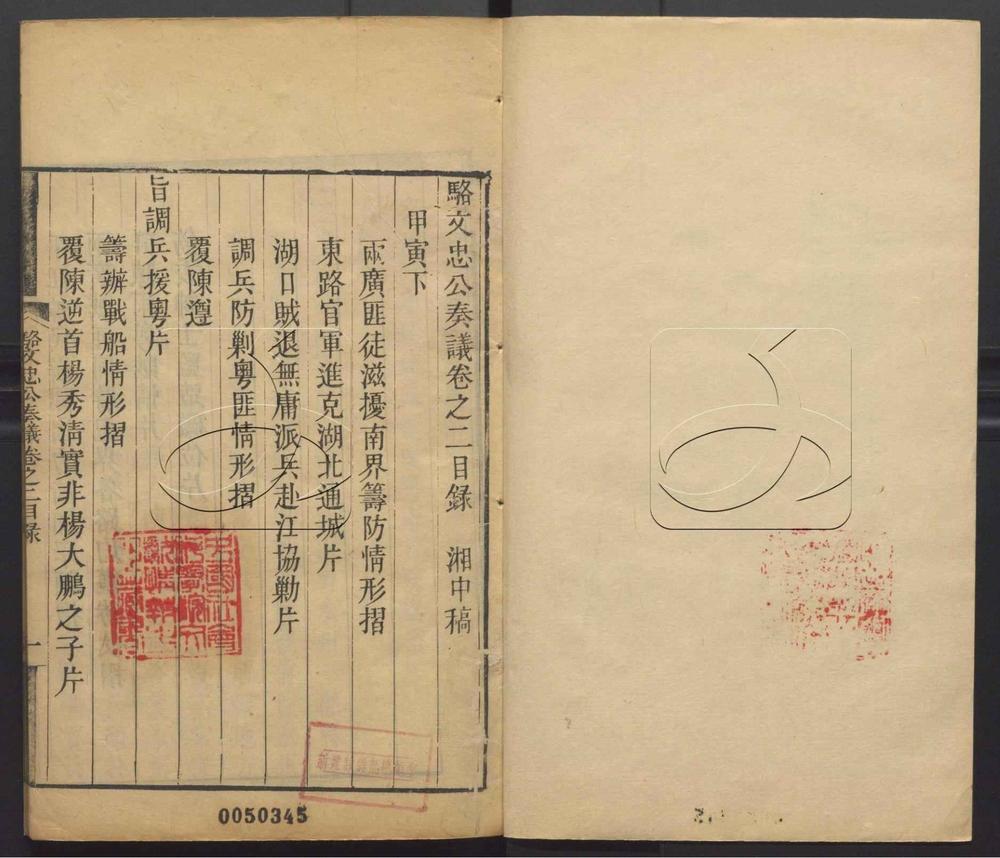 駱文忠公奏議卷之二目錄　湘中稿
甲寅下
兩廣匪徒滋擾南界籌防情形摺
東路官軍進克湖北通城片
湖口賊退無庸派兵赴江協勦片
調兵防剿粵匪情形摺
覆陳遵
旨調兵援粵片
籌辦戰船情形摺
覆陳逆首楊秀清實非楊大鵬之子片
駱文忠公奏議卷之二目錄
一
0050345